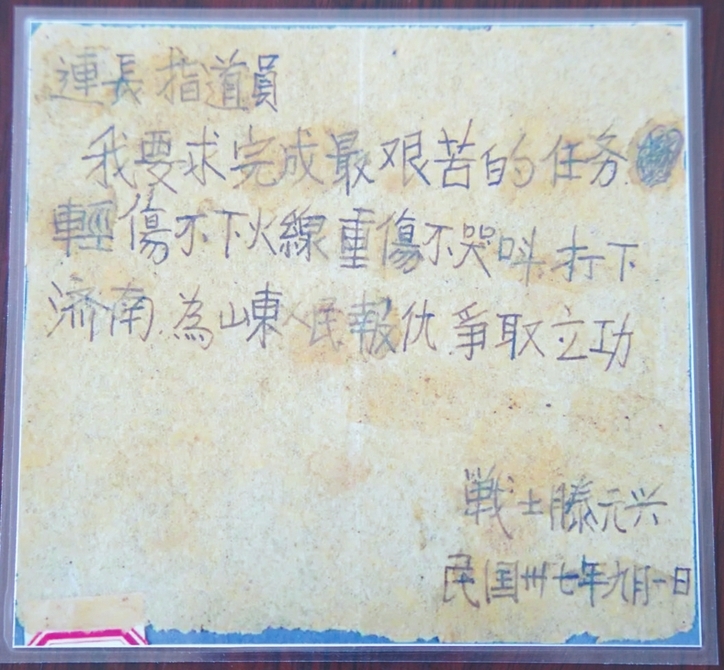 連長 指道員
我要求完成最艰苦的任务
輕傷不下火線重傷不哭呌 打下
济南 為山東人民報仇 爭取立功
戦士滕元兴
民国卅七年九月一日